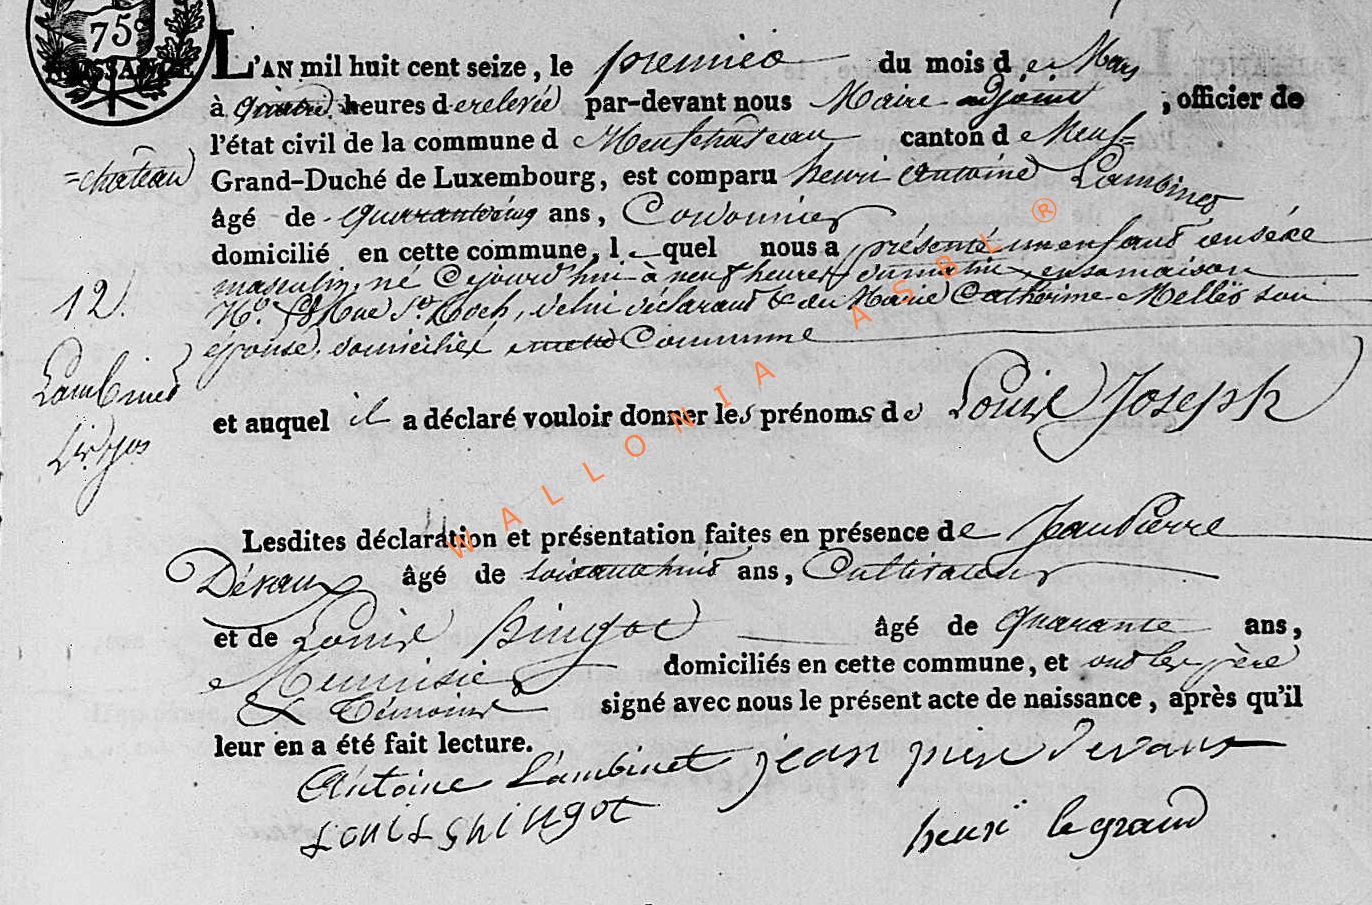 75c
NAISSANCE
L'AN mil huit cent seize, le premier du mois de Mars
à quatre heures de relevée par-devant nous Maire adjoint, officier de
l'état civil de la commune de Neufchateau canton de Neuf=
=château Grand-Duché de Luxembourg, est comparu henri Antoine Lambinet
âgé de quarante cinq ans, Cordonnier
domicilié en cette commune, lequel nous a présenté un enfant du sexe
masculin, né Cejourd'hui à neuf heures du matin, en sa maison
No. 18 Rue St. Roch, de lui déclarant & de Marie Catherine Mellet son
épouse, domiciliés Commune
12.
Lambinet
Ls. Jos
et auquel il a déclaré vouloir donner les prénoms de Louis Joseph
Lesdites déclaration et présentation faites en présence de Jean Pierre
Devaux âgé de soixante huit ans, Cultivateur
et de Louis Hingot âgé de Quarante ans,
Menuisier domiciliés en cette commune, et ont les père
& Témoins signé avec nous le présent acte de naissance, après qu'il
leur en a été fait lecture.
Antoine Lambinet jean piere devaux
Louis hingot
henri legrand
WALLONIA ASBL ®